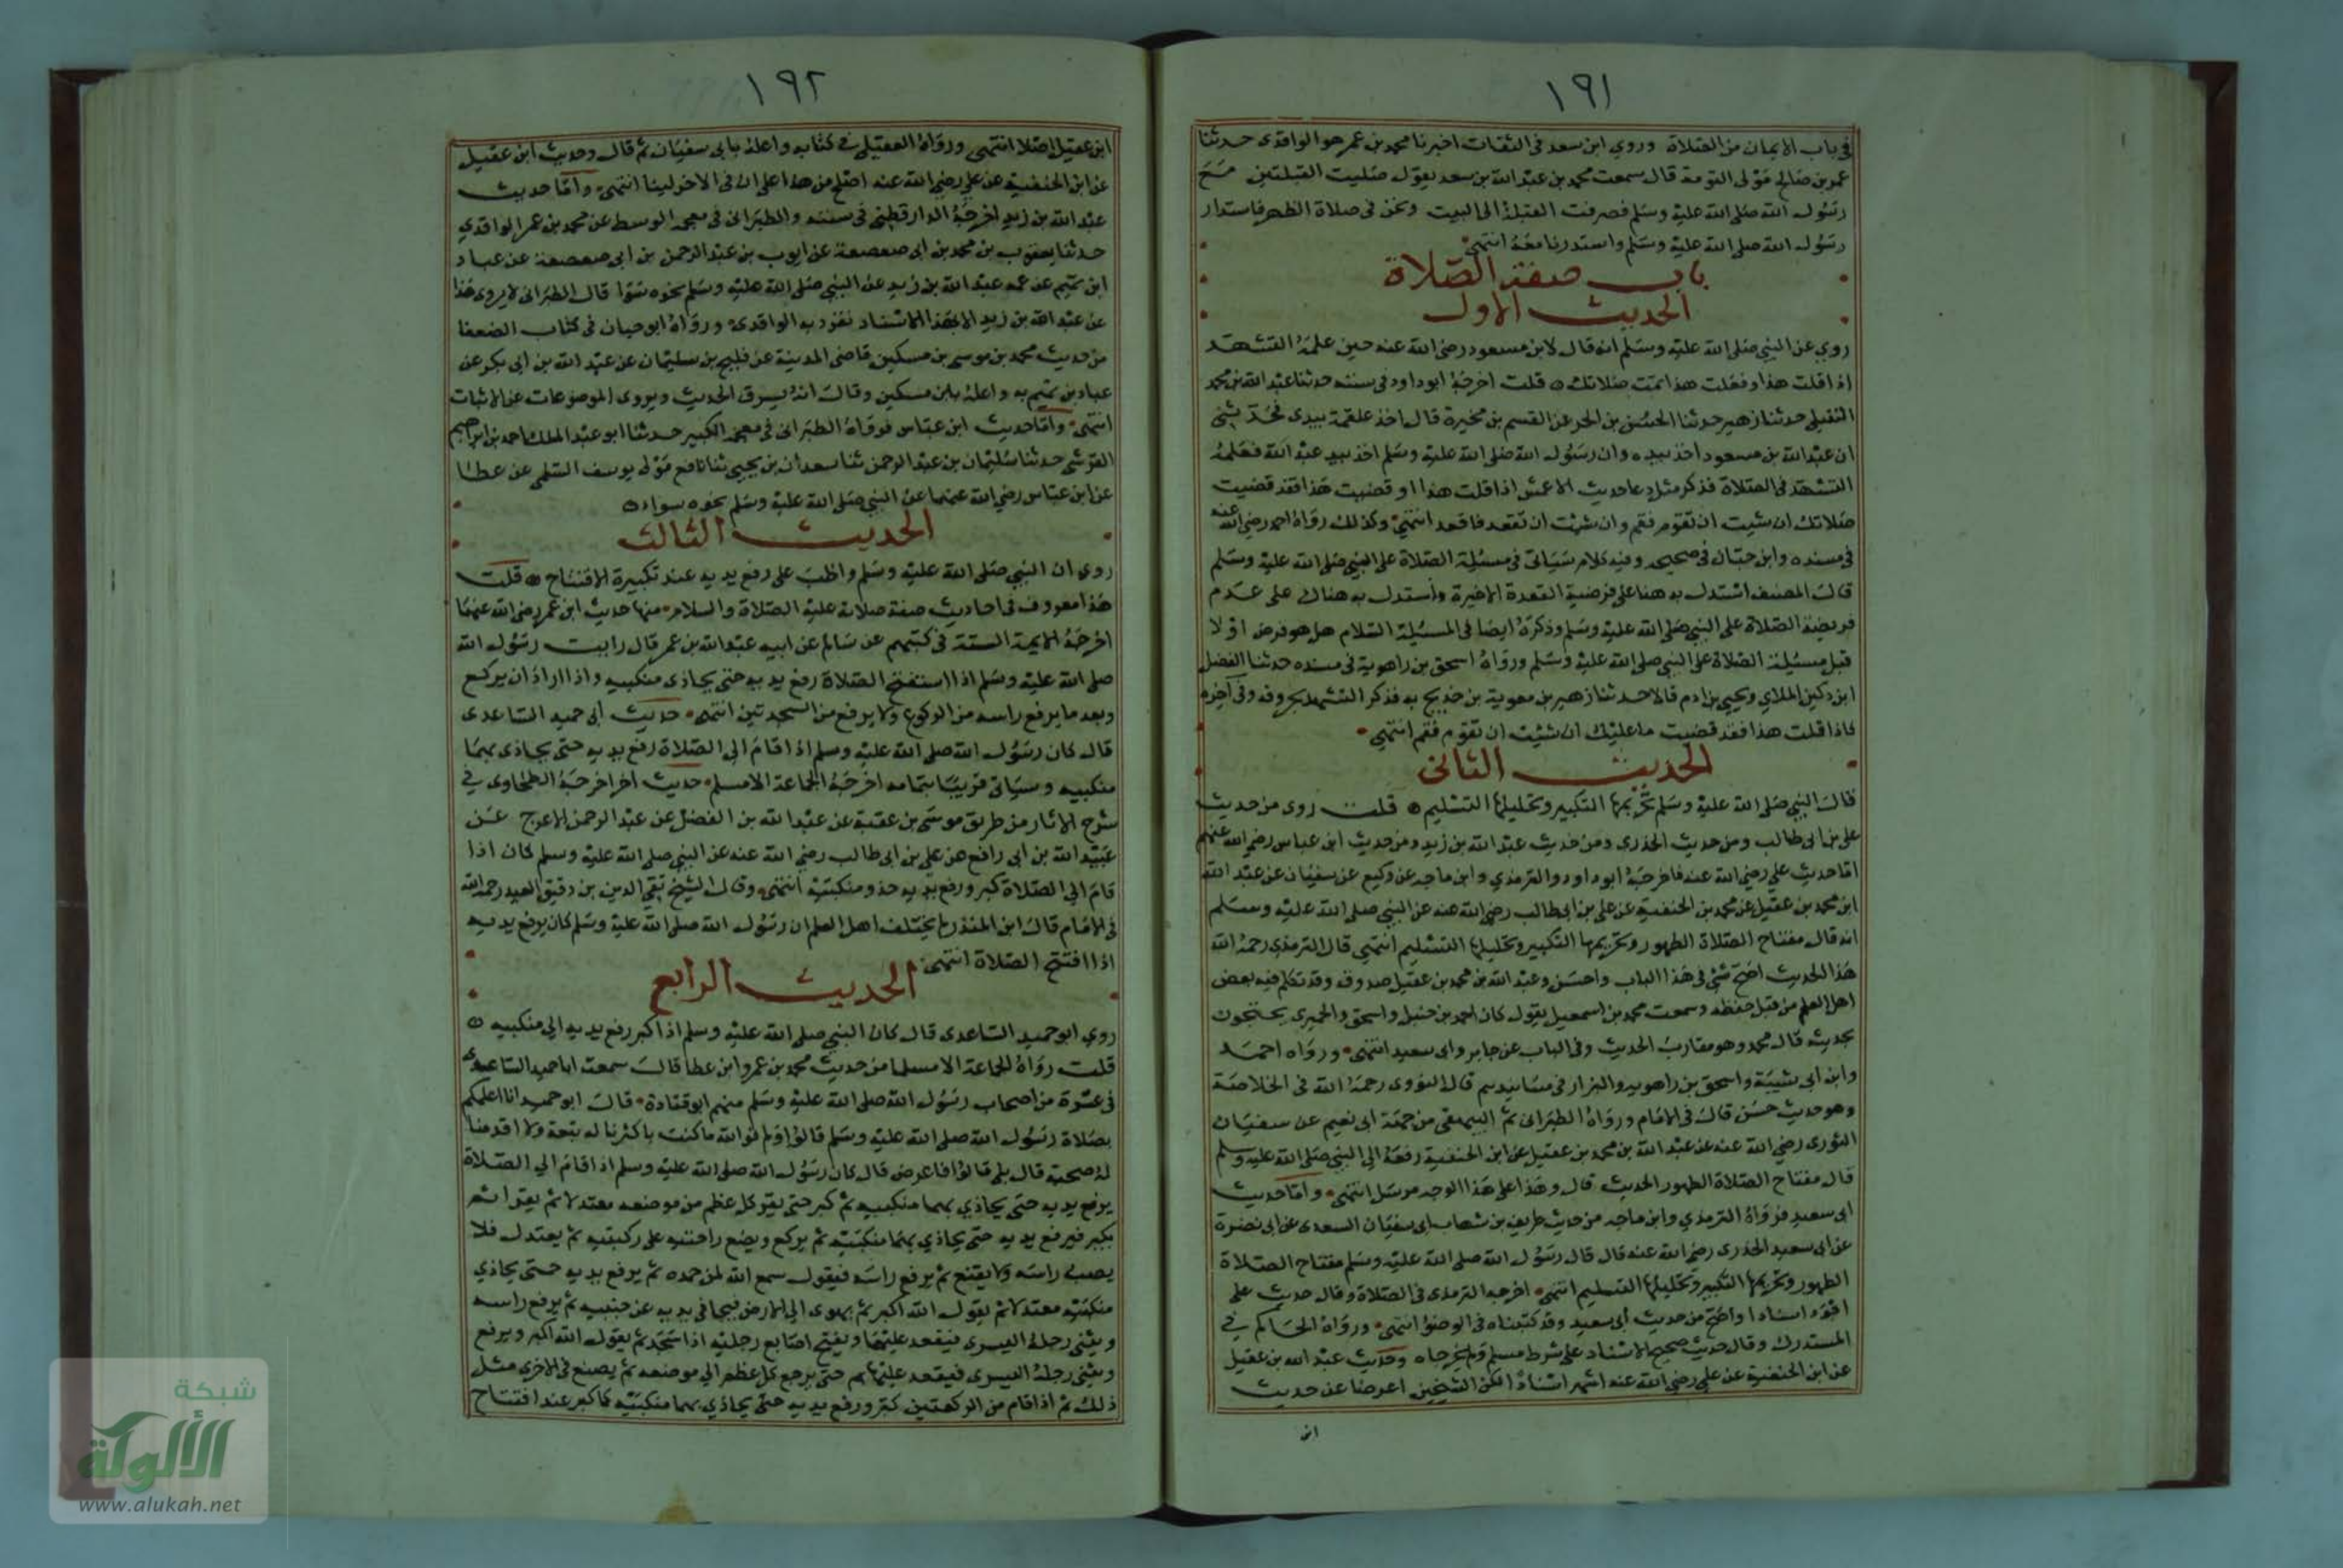 ١٩١
في باب الايمان من الصلاة وروي ابن سعد في الثقات اخبرنا محمد بن عمر هو الواقدى حدثنا
عمر بن صالح مولى التومة قال سمعت محمد بن عبد الله بن سعد يقول صليت القبلتين مع
رسول الله صلى الله عليه وسلم فصرفت القبلة الى البيت ونحن فى صلاة الظهر فاستدار
رسول الله صلى الله عليه وسلم واستدرنا معه انتهى
باب صفة الصلاة
الحديث الاول
روي عن النبي صلى الله عليه وسلم انه قال لابن مسعود رضى الله عنه حين علمه التشهد
اذا قلت هذا وفعلت هذا تمت صلاتك قلت اخرجه ابو داود فى سننه حدثنا عبد الله بن محمد
النفيلى حدثنا زهير حدثنا الحسن بن الحر عن القسم بن مخيرة قال اخذ علقمة بيدى فحدثنى
ان عبد الله بن مسعود اخذ بيده وان رسول الله صلى الله عليه وسلم اخذ بيد عبد الله فعلمه
التشهد فى الصلاة فذكر مثل دعا حديث الاعمش اذا قلت هذا او قضيت هذا فقد قضيت
صلاتك ان شيت ان تقوم فقم وان شئت ان تقعد فاقعد انتهى وكذلك رواه احمد رضى الله عنه
فى مسنده وابن حبان فى صحيحه وفيه كلام سياتى فى مسئلة الصلاة على النبي صلى الله عليه وسلم
قال المصنف استدل به هنا على فرضية القعدة الاخيرة واستدل به هناك على عدم
فريضة الصلاة على النبي صلى الله عليه وسلم وذكره ايضا فى المسئلة السلام هل هو فرض او لا
قبل مسئلة الصلاة على النبي صلى الله عليه وسلم ورواه اسحق بن راهوية فى مسنده حدثنا الفضل
ابن دكين الملاي ويحيى بن ادم قالا حدثنا زهير بن معوية بن خديج به فذكر التشهد بحروفه وفى اخره
فاذا قلت هذا فقد قضيت ما عليك ان شئت ان تقوم فقم انتهى
الحديث الثانى
قال النبي صلى الله عليه وسلم تحريمها التكبير وتحليلها التسليم قلت روى من حديث
على بن ابى طالب ومن حديث الخدرى ومن حديث عبد الله بن زيد ومن حديث ابن عباس رضى الله عنهم
اما حديث علي رضى الله عنه فاخرجه ابو داود والترمذي وابن ماجه عن وكيع عن سفيان عن عبد الله
ابن محمد بن عقيل عن محمد بن الحنفية عن على بن ابى طالب رضى الله عنه عن النبي صلى الله عليه وسلم
انه قال مفتاح الصلاة الطهور وتحريمها التكبير وتحليلها التسليم انتهى قال الترمذى رحمه الله
هذا الحديث اصح شئ فى هذا الباب واحسن وعبد الله بن محمد بن عقيل صدوق وقد تكلم فيه بعض
اهل العلم من قبل حفظه وسمعت محمد بن اسمعيل يقول كان احمد بن حنبل واسحق والحميرى يحتجون
بحديثه قال محمد وهو مقارب الحديث وفى الباب عن جابر وابى سعيد انتهى ورواه احمد
وابن ابى شيبة واسحق بن راهويه والبزار فى مسانيدهم قال النووى رحمه الله فى الخلاصة
وهو حديث حسن قال فى الامام ورواه الطبرانى ثم البيهقى من جهة ابى نعيم عن سفيان
الثورى رضى الله عنه عن عبد الله بن محمد بن عقيل عن ابن الحنفية رفعه الى النبي صلى الله عليه وسلم
قال مفتاح الصلاة الطهور الحديث قال وهذا على هذا الوجه مرسل انتهى واما حديث
ابى سعيد فرواه الترمذي وابن ماجه من حديث طريف بن شهاب ابى سفيان السعدى عن ابى نضرة
عن ابى سعيد الخدرى رضى الله عنه قال قال رسول الله صلى الله عليه وسلم مفتاح الصلاة
الطهور وتحريمها التكبير وتحليلها التسليم انتهى اخرجه الترمذى فى الصلاة وقال حديث على
اقود اسنادا واصح من حديث ابى سعيد وقد كتبناه فى الوضوء انتهى ورواه الحاكم في
المستدرك وقال حديث صحيح الاسناد على شرط مسلم ولم يخرجاه وحديث عبد الله بن عقيل
عن ابن الحنفية عن على رضى الله عنه اشهر اسنادا لكن الشيخين اعرضا عن حديث
ابن
١٩٢
ابن عقيل اصلا انتهى ورواه العقيلى فى كتابه واعله بابى سفيان ثم قال وحديث ابن عقيل
عن ابن الحنفية عن على رضى الله عنه اصلح من هذا على ان فى الاخر لينا انتهى واما حديث
عبد الله بن زيد اخرجه الدارقطنى فى سننه والطبرانى فى معجمه الوسط عن محمد بن عمر الواقدي
حدثنا يعقوب بن محمد بن ابى صعصعة عن ايوب بن عبد الرحمن بن ابى صعصعة عن عباد
ابن تميم عن عمه عبد الله بن زيد عن النبي صلى الله عليه وسلم نحوه سوا قال الطبرانى لا يروى هذا
عن عبد الله بن زيد الا بهذا الاسناد تفرد به الواقدى ورواه ابو حبان فى كتاب الضعفا
من حديث محمد بن موسى بن مسكين قاضى المدينة عن فليح بن سليمان عن عبد الله بن ابى بكر عن
عباد بن تميم به واعله بابن مسكين وقال انه يسرق الحديث ويروى الموضوعات عن الاثبات
انتهى واما حديث ابن عباس فرواه الطبرانى فى معجمه الكبير حدثنا ابو عبد الملك احمد بن ابراهيم
القرشى حدثنا سليمان بن عبد الرحمن ثنا سعدان بن يحيى ثنا نافع مولى يوسف السلمى عن عطا
عن ابن عباس رضى الله عنهما عن النبي صلى الله عليه وسلم نحوه سواء
الحديث الثالث
روى ان النبي صلى الله عليه وسلم واظب على رفع يديه عند تكبيرة الافتتاح قلت
هذا معروف فى احاديث صفة صلاته عليه الصلاة والسلام منها حديث ابن عمر رضى الله عنهما
اخرجه الايمة الستة فى كتبهم عن سالم عن ابيه عبد الله بن عمر قال رايت رسول الله
صلى الله عليه وسلم اذا استفتح الصلاة رفع يديه حتى يحاذى منكبيه واذا اراد ان يركع
وبعد ما يرفع راسه من الركوع ولا يرفع من السجدتين انتهى حديث ابى حميد الساعدى
قال كان رسول الله صلى الله عليه وسلم اذا قام الى الصلاة رفع يديه حتى يحاذى بهما
منكبيه وسياتى قريبا بتمامه اخرجه الجماعة الا مسلم حديث اخر اخرجه الطحاوى فى
شرح الاثار من طريق موسى بن عقبة عن عبد الله بن الفضل عن عبد الرحمن الاعرج عن
عبيد الله بن ابى رافع عن على بن ابى طالب رضى الله عنه عن النبي صلى الله عليه وسلم كان اذا
قام الى الصلاة كبر ورفع يديه حذو منكبيه انتهى وقال الشيخ تقى الدين بن دقيق العيد رحمه الله
فى الامام قال ابن المنذر لم يختلف اهل العلم ان رسول الله صلى الله عليه وسلم كان يرفع يديه
اذا افتتح الصلاة انتهى
الحديث الرابع
روي ابو حميد الساعدى قال كان النبي صلى الله عليه وسلم اذا كبر رفع يديه الى منكبيه
قلت رواه الجماعة الا مسلما من حديث محمد بن عمرو ابن عطا قال سمعت ابا حميد الساعدى
فى عشرة من اصحاب رسول الله صلى الله عليه وسلم منهم ابو قتادة قال ابو حميد انا اعلمكم
بصلاة رسول الله صلى الله عليه وسلم قالوا فلم فوالله ما كنت باكثرنا له تبعة ولا اقدمنا
له صحبة قال بلى قالوا فاعرض قال كان رسول الله صلى الله عليه وسلم اذا قام الى الصلاة
يرفع يديه حتى يحاذي بهما منكبيه ثم كبر حتى يقر كل عظم من موضعه معتدلا ثم يقرا ثم
يكبر فيرفع يديه حتى يحاذي بهما منكبيه ثم يركع ويضع راحتيه على ركبتيه ثم يعتدل فلا
يصب راسه ولا يقنع ثم يرفع راسه فيقول سمع الله لمن حمده ثم يرفع يديه حتى يحاذي
منكبيه معتدلا ثم يقول الله اكبر ثم يهوى الى الارض فيجافى يديه عن جنبيه ثم يرفع راسه
ويثنى رجله اليسرى فيقعد عليها ويفتح اصابع رجليه اذا سجد ثم يقول الله اكبر ويرفع
ويثنى رجله اليسرى فيقعد عليها حتى يرجع كل عظم الى موضعه ثم يصنع فى الاخرى مثل
ذلك ثم اذا قام من الركعتين كبر ورفع يديه حتى يحاذي بهما منكبيه كما كبر عند افتتاح
شبكة
الألوكة
www.alukah.net